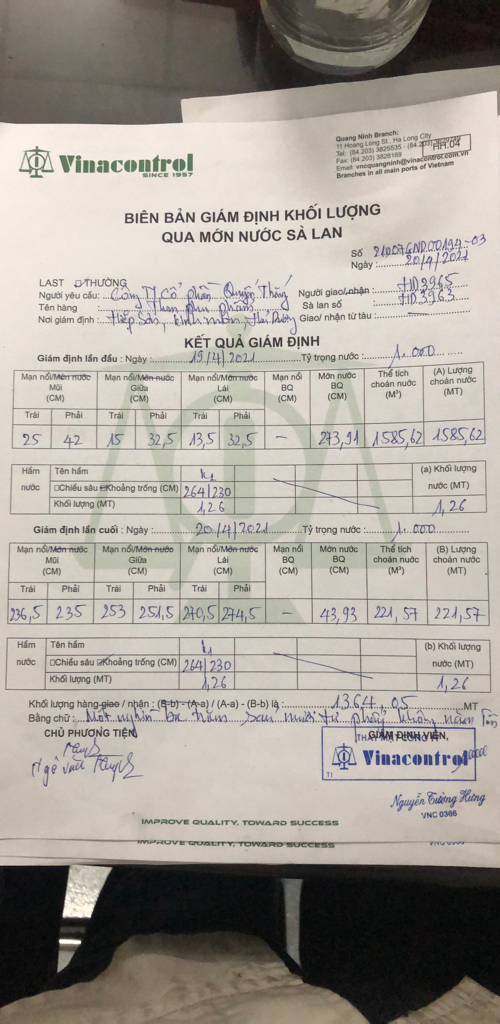 Vinacontrol
SINCE 1957
Quang Ninh Branch:
11 Hoang Long St., Ha Long City
Tel: (84.203) 3825535 - (84.203)
Fax: (84.203) 3826169
Email: vncquangninh@vinacontrol.com.vn
Branches in all main ports of Vietnam
HH.04
BIÊN BẢN GIÁM ĐỊNH KHỐI LƯỢNG
QUA MỚN NƯỚC SÀ LAN
Số 21D07GND00194-03
Ngày: 20/4/2021
LAST THƯỜNG
Người yêu cầu: Công Ty Cổ phần Quyết Thắng
Người giao/nhận: HD3965
Tên hàng Than phụ phẩm
Sà lan số HD3963
Nơi giám định: Hiệp Sơn, Kinh Môn, Hải Dương
Giao/ nhận từ tàu:
KẾT QUẢ GIÁM ĐỊNH
Giám định lần đầu: Ngày: 19/4/2021 Tỷ trọng nước: 1.000
Mạn nổi/Mớn nước Mũi (CM) Mạn nổi/Mớn nước Giữa (CM) Mạn nổi/Mớn nước Lái (CM) Mạn nổi BQ (CM) Mớn nước BQ (CM) Thể tích choán nước (M³) (A) Lượng choán nước (MT)
Trái Phải Trái Phải Trái Phải
25 42 15 32,5 13,5 32,5 - 273,91 1585,62 1585,62
Hầm nước Tên hầm k1 (a) Khối lượng nước (MT)
Chiều sâu Khoảng trống (CM) 264/230
Khối lượng (MT) 1,26 1,26
Giám định lần cuối: Ngày: 20/4/2021 Tỷ trọng nước: 1.000
Mạn nổi/Mớn nước Mũi (CM) Mạn nổi/Mớn nước Giữa (CM) Mạn nổi/Mớn nước Lái (CM) Mạn nổi BQ (CM) Mớn nước BQ (CM) Thể tích choán nước (M³) (B) Lượng choán nước (MT)
Trái Phải Trái Phải Trái Phải
236,5 235 253 251,5 270,5 274,5 - 43,93 221,57 221,57
Hầm nước Tên hầm k1 (b) Khối lượng nước (MT)
Chiều sâu Khoảng trống (CM) 264/230
Khối lượng (MT) 1,26 1,26
Khối lượng hàng giao / nhận: (B-b) - (A-a) / (A-a) - (B-b) là: 1364,05 MT
Bằng chữ: Một nghìn ba trăm sáu mươi tư phẩy không năm Tấn
CHỦ PHƯƠNG TIỆN,
GIÁM ĐỊNH VIÊN,
Vinacontrol
Nguyễn Tường Hưng
VNC 0366
IMPROVE QUALITY, TOWARD SUCCESS
IMPROVE QUALITY, TOWARD SUCCESS